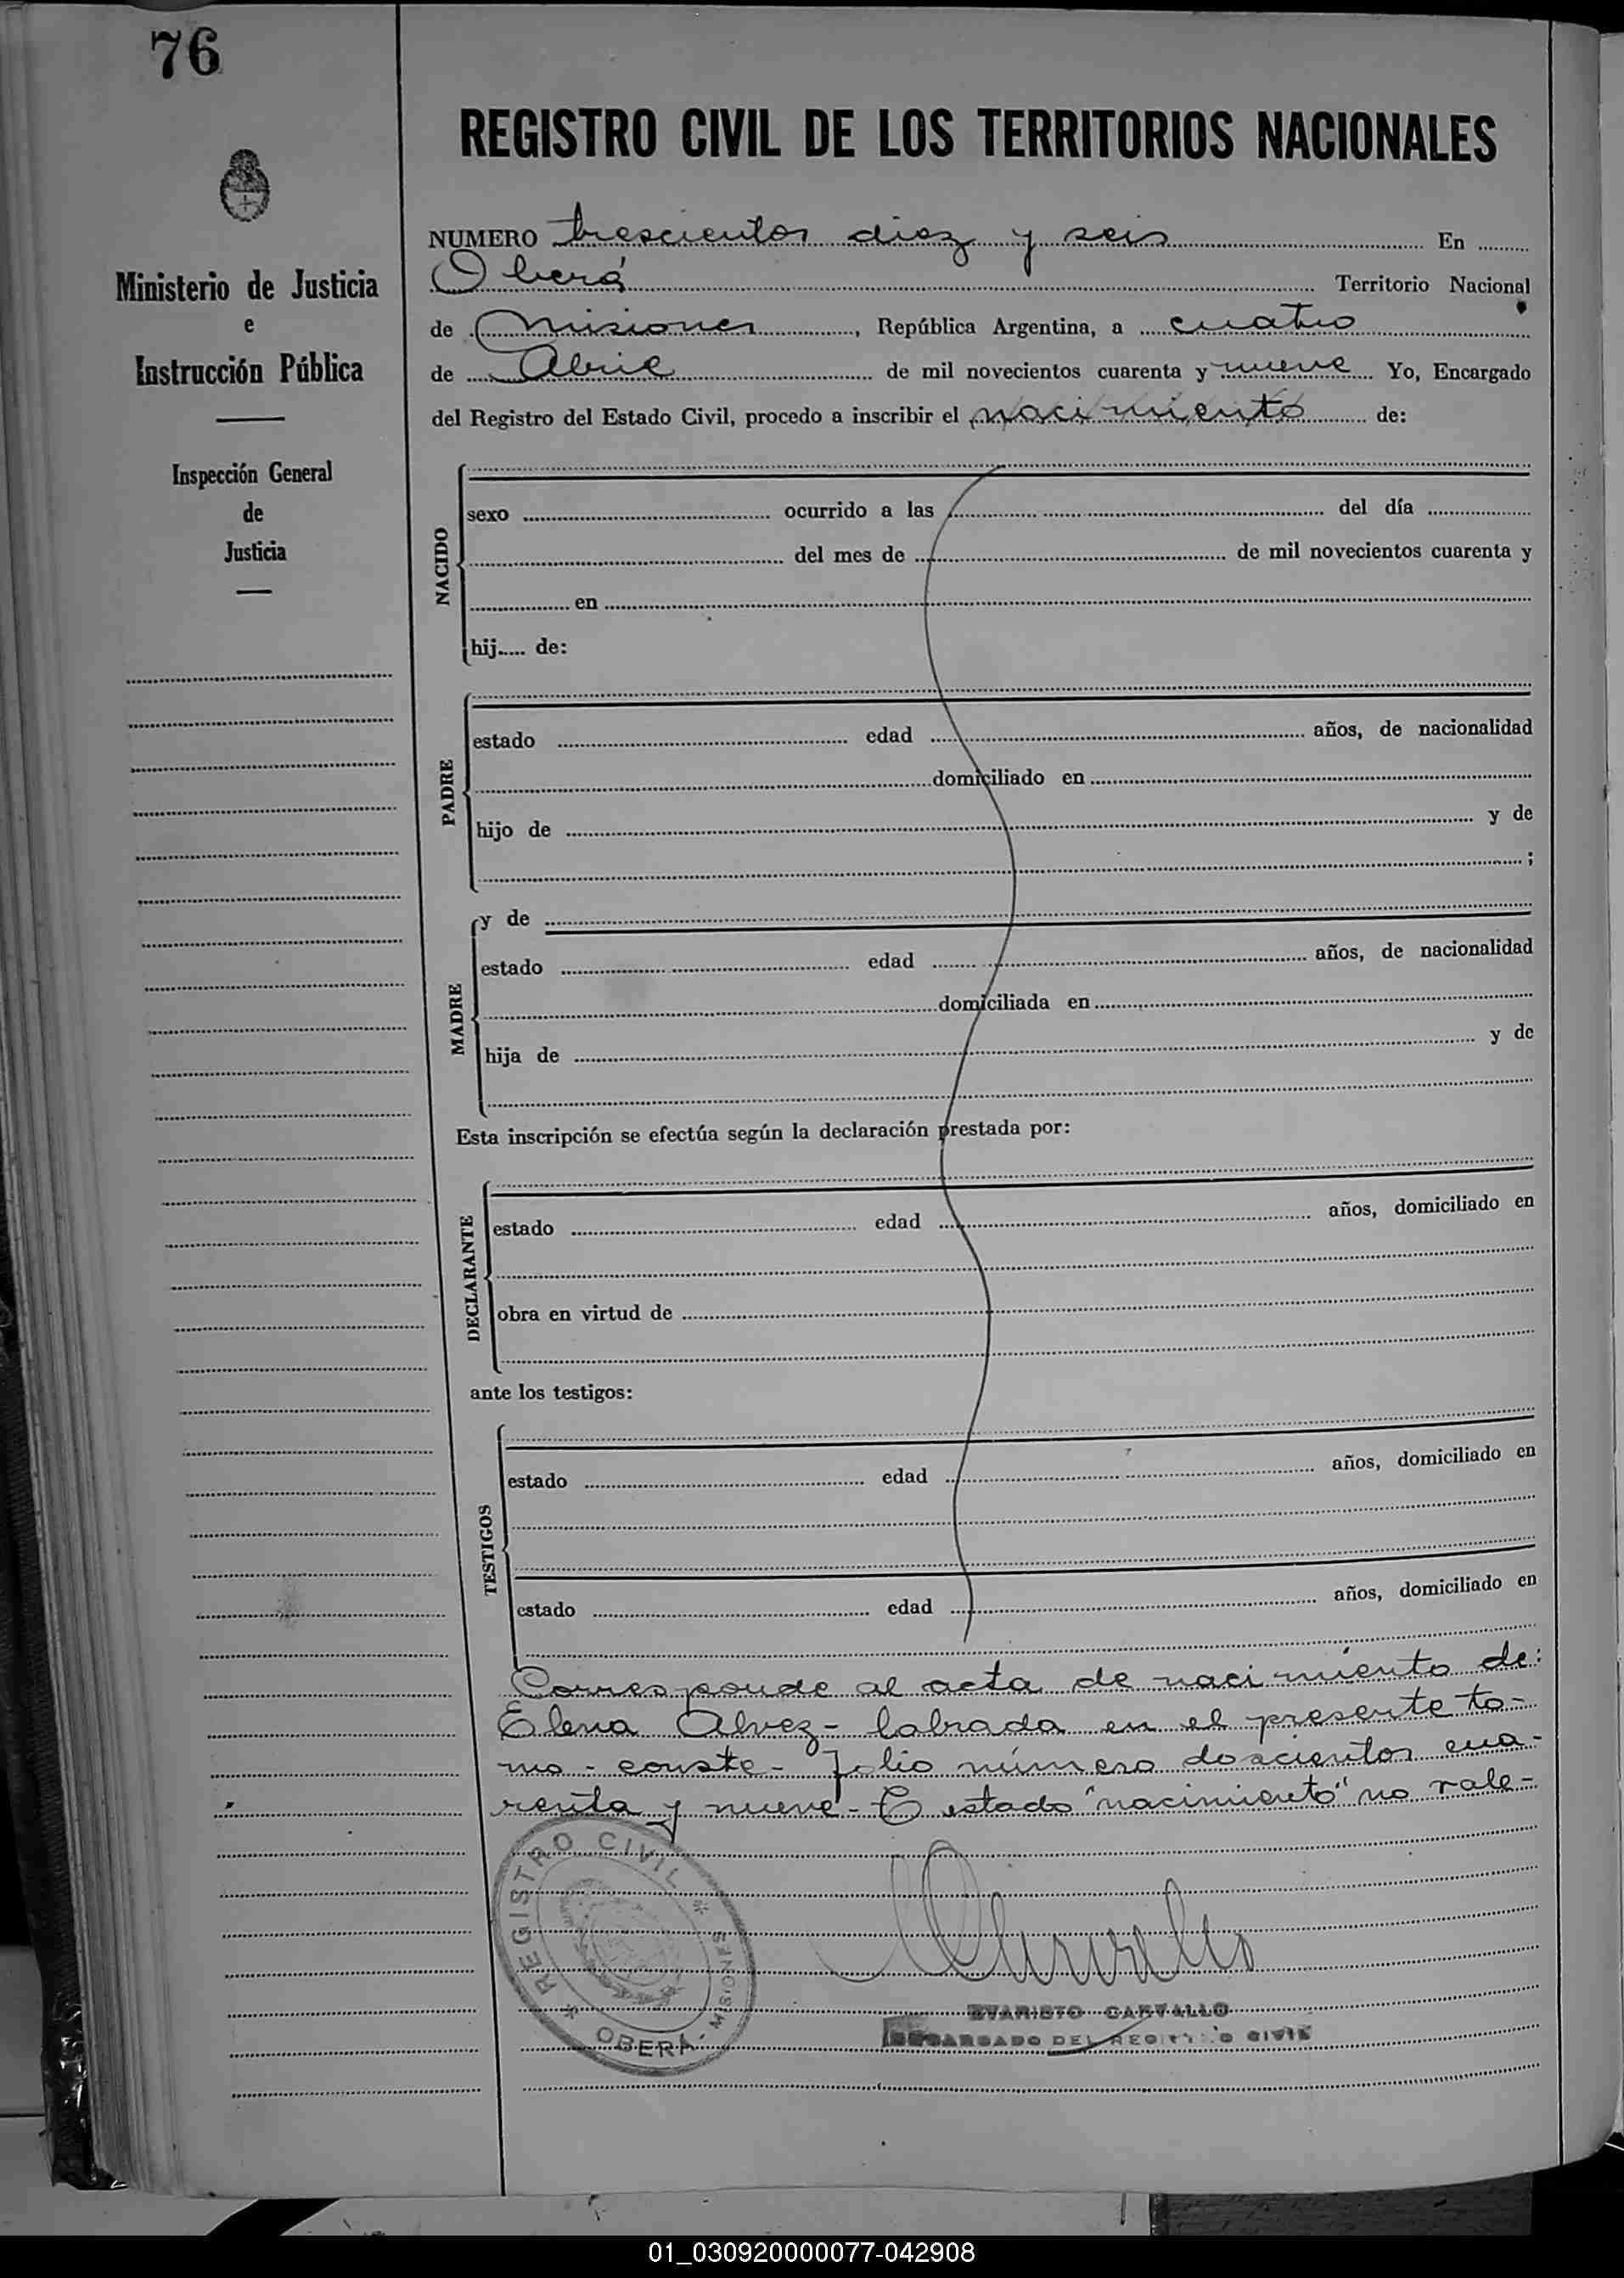 76
REGISTRO CIVIL DE LOS TERRITORIOS NACIONALES
Ministerio de Justicia
e
Instrucción Pública
Inspección General
de
Justicia
NUMERO trescientos diez y seis En
Oberá Territorio Nacional
de Misiones, República Argentina, a cuatro
de Abril de mil novecientos cuarenta y nueve Yo, Encargado
del Registro del Estado Civil, procedo a inscribir el nacimiento de:
NACIDO
sexo ocurrido a las del día
del mes de de mil novecientos cuarenta y
en
hij..... de:
PADRE
estado edad años, de nacionalidad
domiciliado en
hijo de y de
;
MADRE
y de
estado edad años, de nacionalidad
domiciliada en
hija de y de
Esta inscripción se efectúa según la declaración prestada por:
DECLARANTE
estado edad años, domiciliado en
obra en virtud de
ante los testigos:
TESTIGOS
estado edad años, domiciliado en
estado edad años, domiciliado en
Corresponde al acta de nacimiento de:
Elena Alvez - labrada en el presente to-
mo - conste - folio número doscientos cua-
renta y nueve - E estado "nacimiento" no vale -
REGISTRO CIVIL
OBERÁ - MISIONES
EVARISTO CARVALLO
ENCARGADO DEL REGISTRO CIVIL
01_030920000077-042908